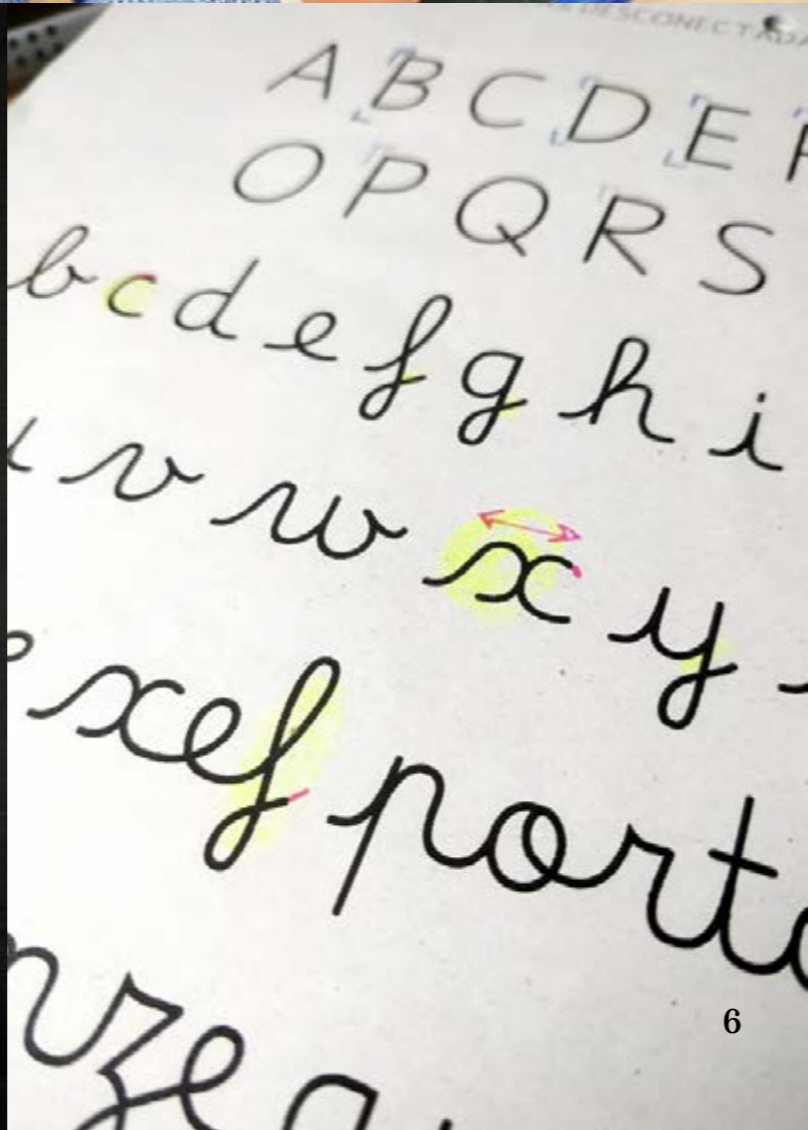 DESCONECTADA
A B C D E F
O P Q R S
b c d e f g h i
v w x y
exef porto
nzea
6